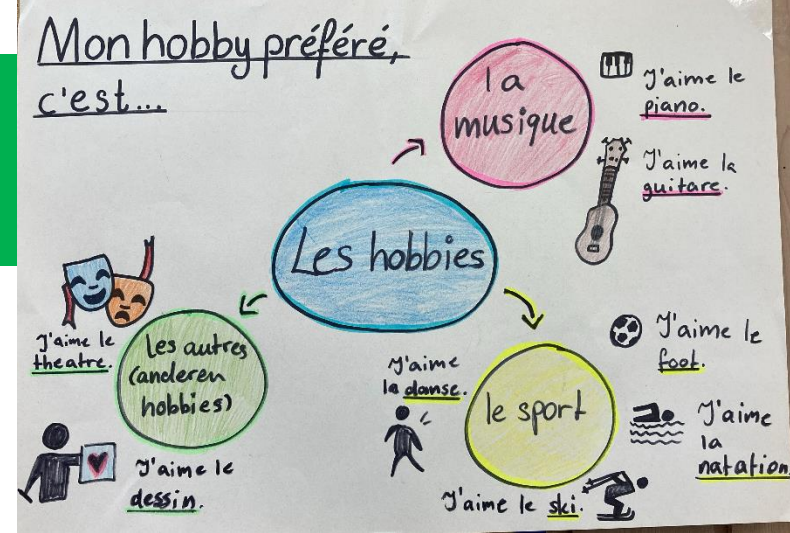 Mon hobby préféré,
c'est...
la
musique
J'aime le
piano.
J'aime la
guitare.
Les hobbies
J'aime le
theatre.
Les autres
(anderen
hobbies)
J'aime le
dessin.
J'aime
la danse.
le sport
J'aime le
foot.
J'aime
la
natation.
J'aime le ski.